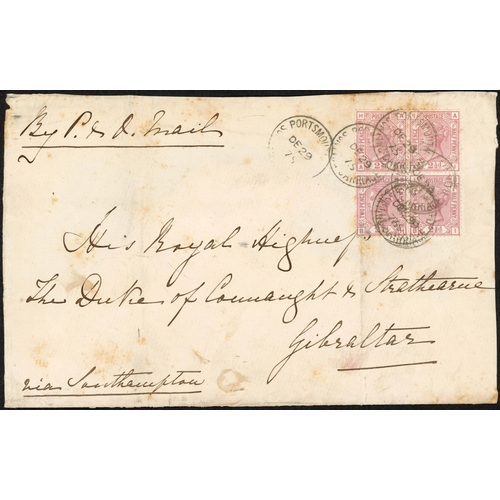 By P. & O. Mail
PORTSMOU
DE 29
His Royal Highness
The Duke of Connaught & Strathearne
Gibraltar
via Southampton